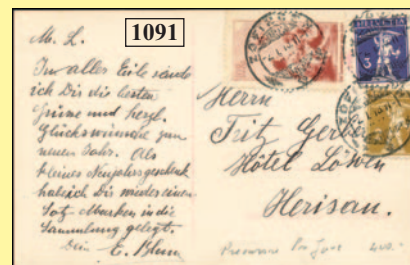 1091
M. L.
In aller Eile sende
ich Dir die besten
Grüsse und herzl.
Glückwünsche zum
neuen Jahr. Als
kleines Neujahrsgeschenk
hab ich Dir wieder einen
Satz Marken in die
Sammlung gelegt.
Dein E. Blum
ZOFINGEN
Herrn
Fritz Gerber
Hôtel Löwen
Herisau.
400.-